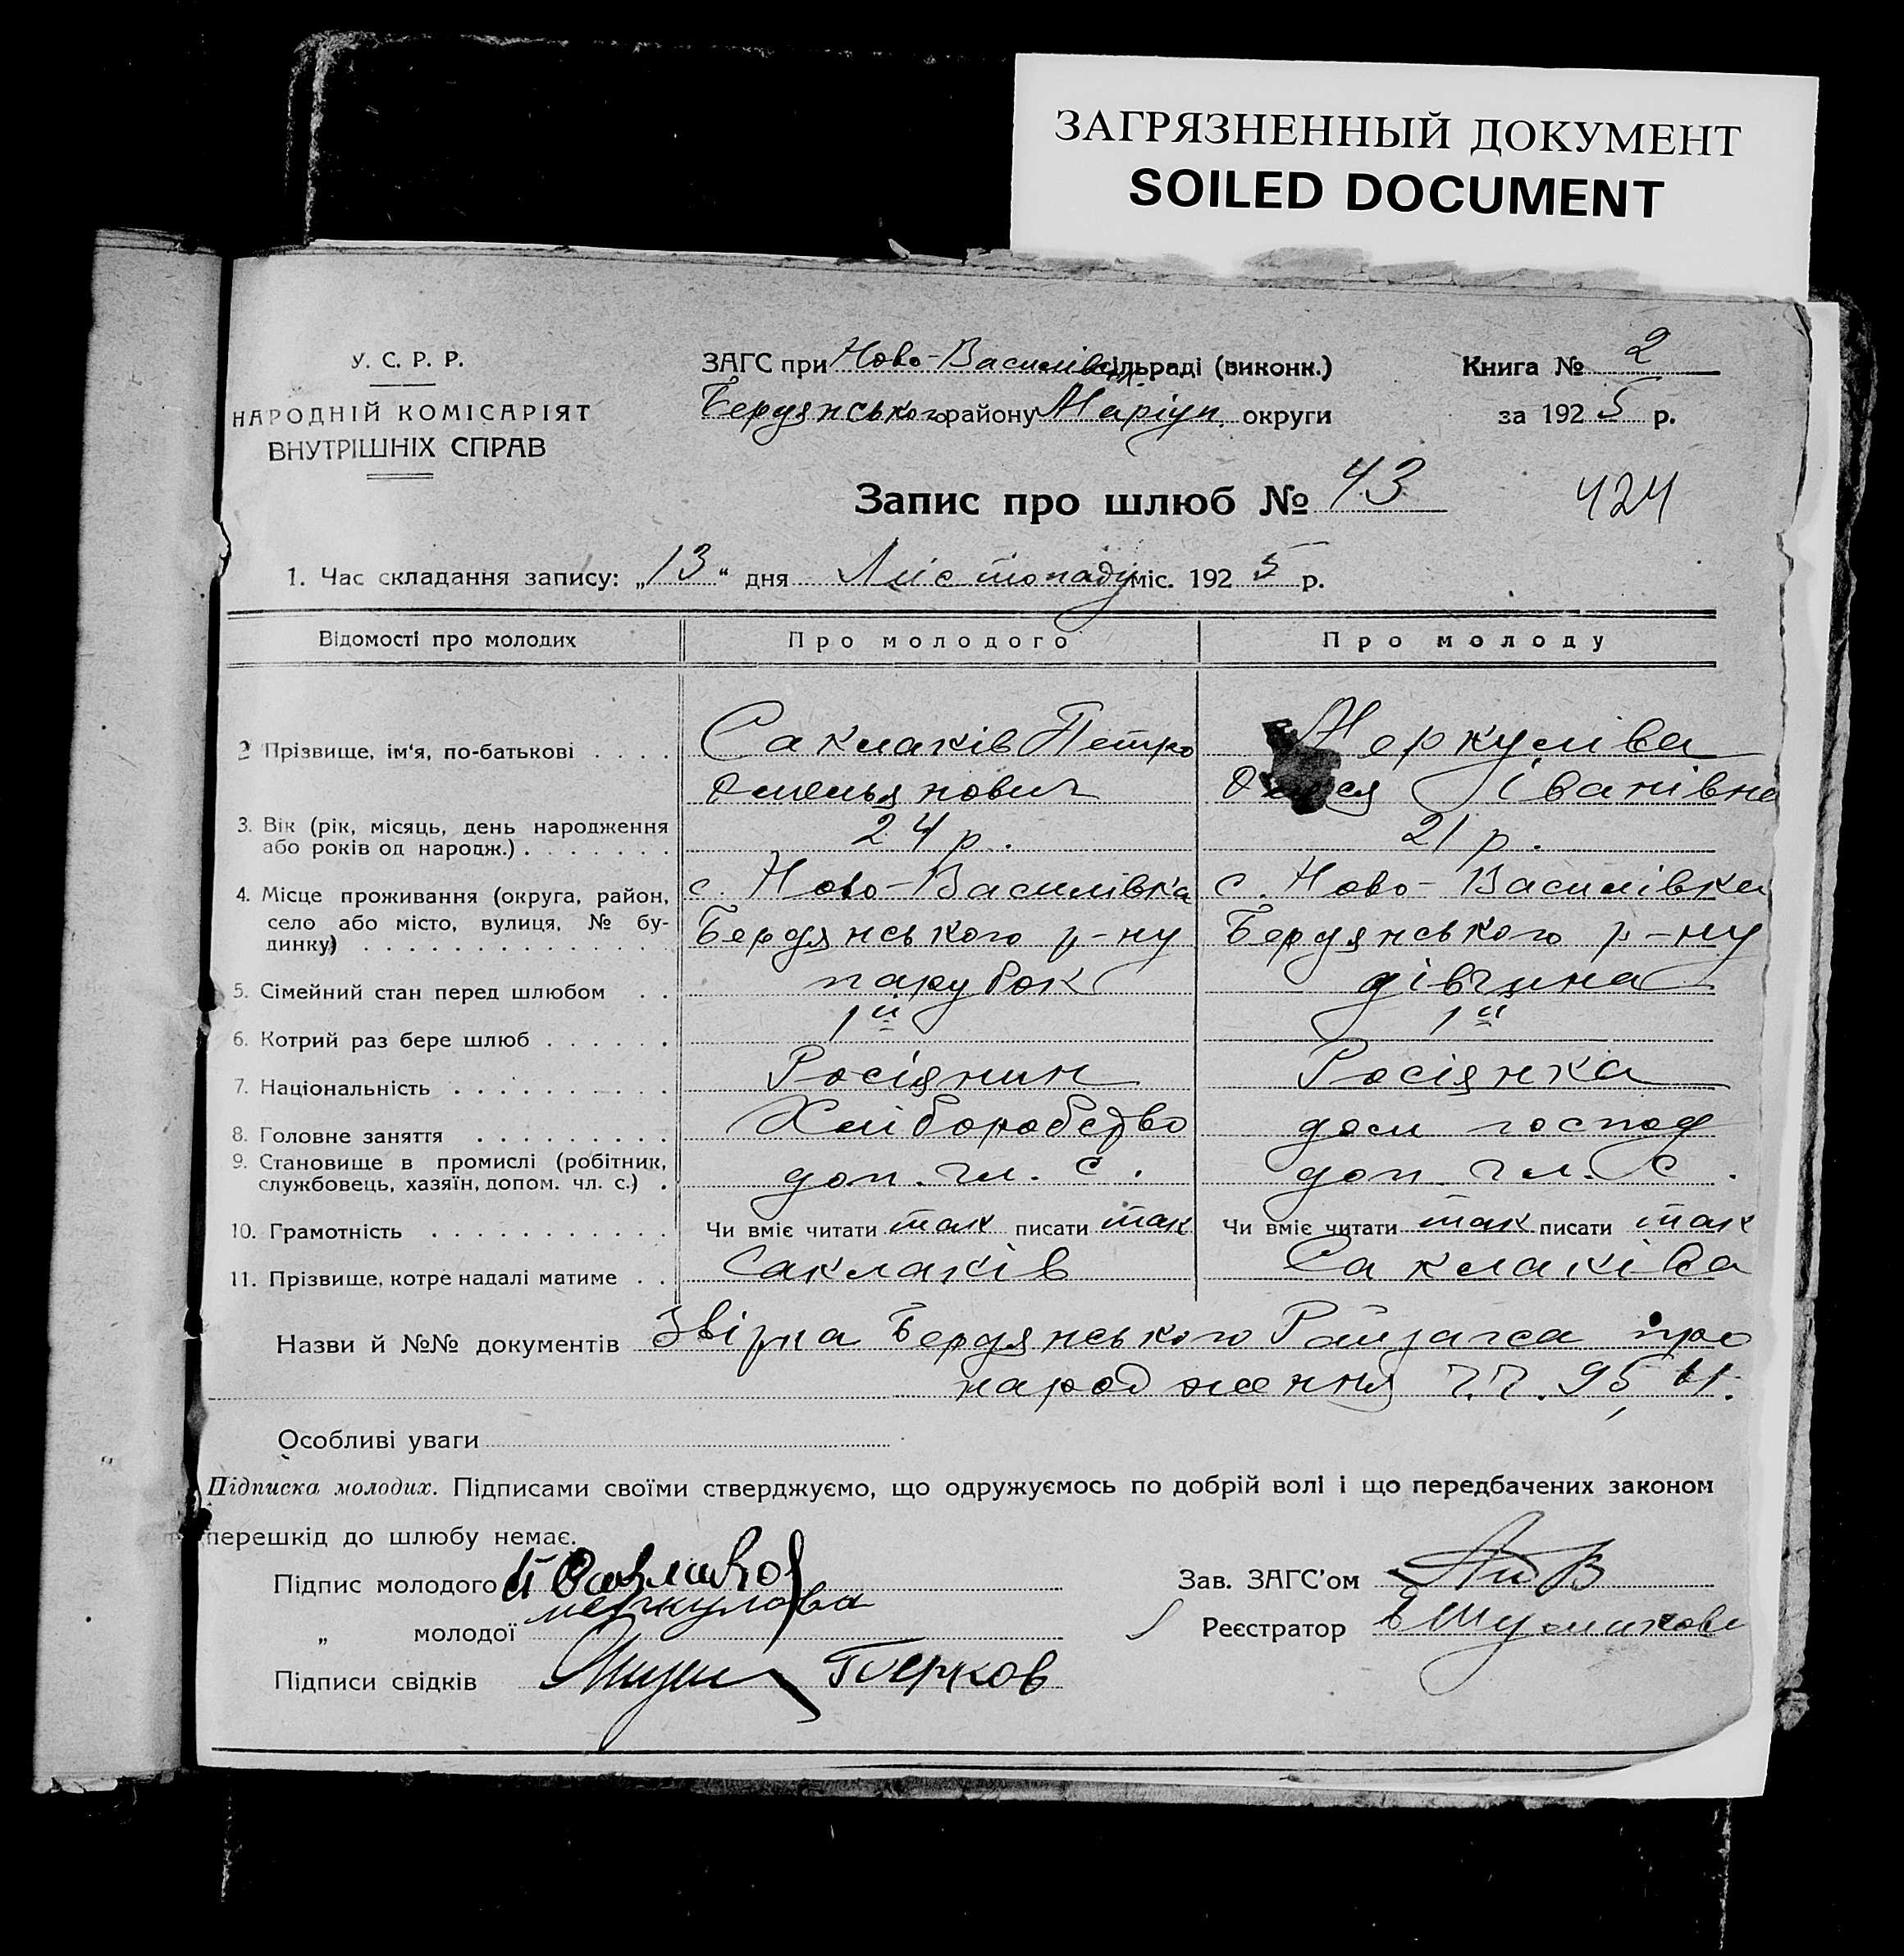 ЗАГРЯЗНЕННЫЙ ДОКУМЕНТ
SOILED DOCUMENT
У. С. Р. Р.
НАРОДНІЙ КОМІСАРІЯТ
ВНУТРІШНІХ СПРАВ
ЗАГС при Ново-Василівськ. сільраді (виконк.)
Бердянського району Маріуп. округи
Книга № 2
за 1925 р.
Запис про шлюб № 43
424
1. Час складання запису: „13“ дня Лістопаду міс. 1925 р.
Відомості про молодих Про молодого Про молоду
2 Прізвище, ім'я, по-батькові . . . . Саклаків Петро Меркуліва
Омельянович Іванівна
3. Вік (рік, місяць, день народження
або років од народж.) . . . . . . . 24 р. 21 р.
4. Місце проживання (округа, район, с. Ново-Василівка с. Ново-Василівка
село або місто, вулиця, № бу-
динку) . . . . . . . . . . . . . . Бердянського р-ну Бердянського р-ну
5. Сімейний стан перед шлюбом . . парубок дівчина
6. Котрий раз бере шлюб . . . . . . 1й 1й
7. Національність . . . . . . . . . . Росіянин Росіянка
8. Головне заняття . . . . . . . . . Хліборобство дом господ
9. Становище в промислі (робітник,
службовець, хазяїн, допом. чл. с.) . доп. чл. с. доп. чл. с.
10. Грамотність . . . . . . . . . . . Чи вміє читати так писати так Чи вміє читати так писати так
11. Прізвище, котре надалі матиме . . Саклаків Саклаківа
Назви й №№ документів Звірка Бердянського Райзагса про
народження
Особливі уваги
Підписка молодих. Підписами своїми стверджуємо, що одружуємось по добрій волі і що передбачених законом
перешкід до шлюбу немає.
Підпис молодого П Саклаков
Зав. ЗАГС'ом
„ молодої меркулова
Реєстратор
Підписи свідків